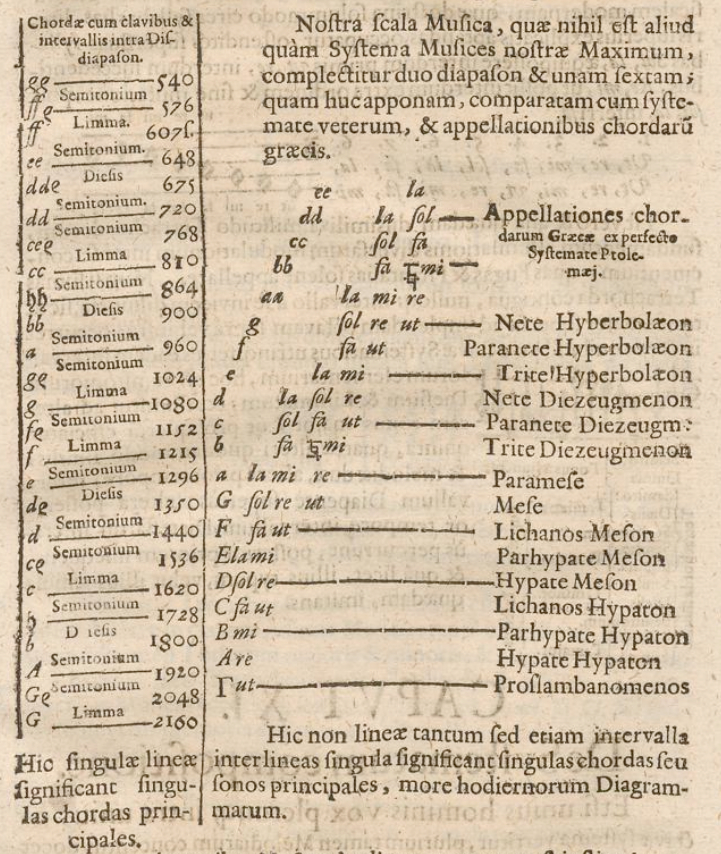 Chordæ cum clavibus &
intervallis intra Dis-
diapason.
gg 540
Semitonium
ffe 576
Limma.
ff 607½.
Semitonium.
ee 648
Diesis
dde 675
Semitonium.
dd 720
Semitonium
cce 768
Limma
cc 810
Semitonium
hh 864
Diesis
bb 900
Semitonium
a 960
Semitonium
ge 1024
Limma
g 1080
Semitonium
fe 1152
Limma
f 1215
Semitonium
e 1296
Diesis
de 1350
Semitonium
d 1440
Semitonium
ce 1536
Limma
c 1620
Semitonium
h 1728
Diesis
b 1800
Semitonium
A 1920
Semitonium
Ge 2048
Limma
G 2160
Hic singulæ lineæ
significant singu-
las chordas prin-
cipales.
Nostra scala Musica, quæ nihil est aliud
quàm Systema Musices nostræ Maximum,
complectitur duo diapason & unam sextam;
quam huc apponam, comparatam cum syste-
mate veterum, & appellationibus chordarū
græcis.
ee la
dd la sol Appellationes chor-
cc sol fa darum Græcæ ex perfecto
Systemate Ptole-
bb fa ♮mi mæj.
aa la mi re
g sol re ut Nete Hyberbolæon
f fa ut Paranete Hyperbolæon
e la mi Trite Hyperbolæon
d la sol re Nete Diezeugmenon
c sol fa ut Paranete Diezeugm:
b fa ♮mi Trite Diezeugmenon
a la mi re Paramese
G sol re ut Mese
F fa ut Lichanos Meson
E la mi Parhypate Meson
D sol re Hypate Meson
C fa ut Lichanos Hypaton
B mi Parhypate Hypaton
A re Hypate Hypaton
Γ ut Proslambanomenos
Hic non lineæ tantum sed etiam intervalla
inter lineas singula significant singulas chordas seu
sonos principales, more hodiernorum Diagram-
matum.